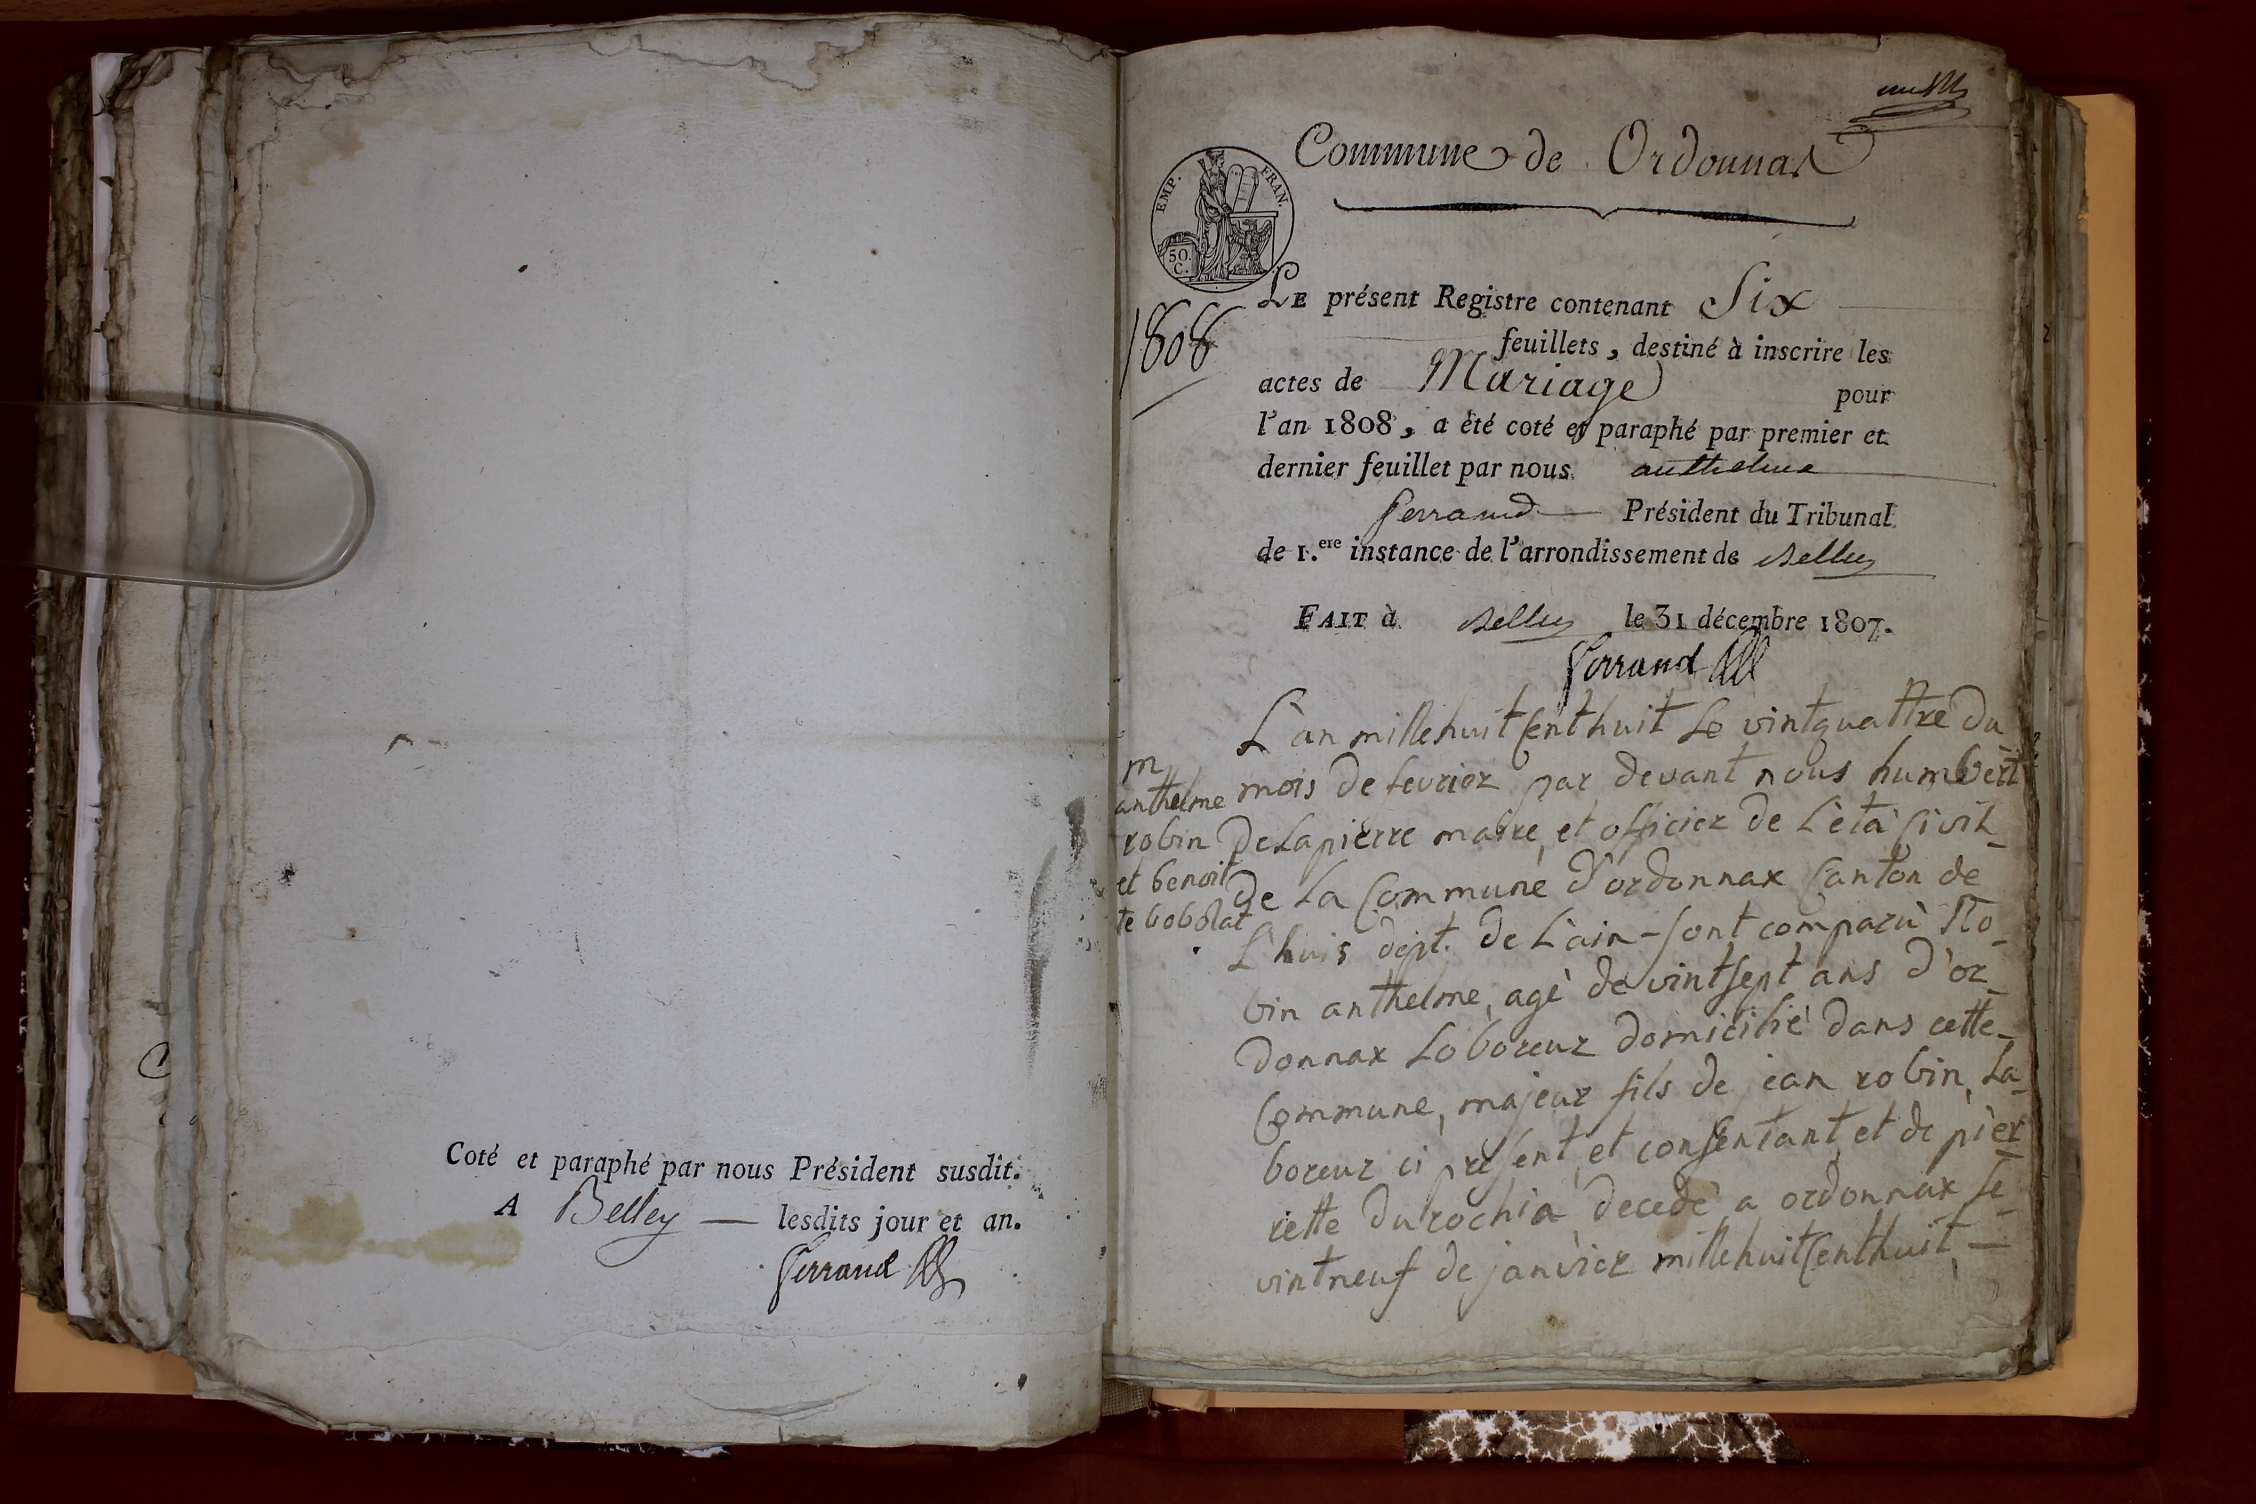 Coté et paraphé par nous Président susdit.
A Belley — lesdits jour et an.
Ferrand
Commune de Ordonnas
EMP. FRAN.
50.
C.
1808
LE présent Registre contenant Six
feuillets, destiné à inscrire les
actes de Mariage pour
l'an 1808, a été coté et paraphé par premier et
dernier feuillet par nous anthelme
Ferrand — Président du Tribunal
de 1.ere instance de l'arrondissement de Belley
FAIT à Belley le 31 décembre 1807.
Ferrand
m
anthelme
robin
et benoit
te bobolat
L'an mille huit Cent huit Le vintquattre du
mois de fevrier par devant nous humbert
Delapierre maire et officier de L'èta Civil
de La Commune d'ordonnax Canton de
L'huis dept. de L'ain - sont comparù Ro-
bin anthelme, agè de vintsept ans d'or-
donnax Laboreur domicilié dans cette
Commune, majeur fils de jean robin La-
boreur ci présent, et consentant, et de pièr-
rette durochia decedè a ordonnax le
vintneuf de janvier mille huit Cent huit —